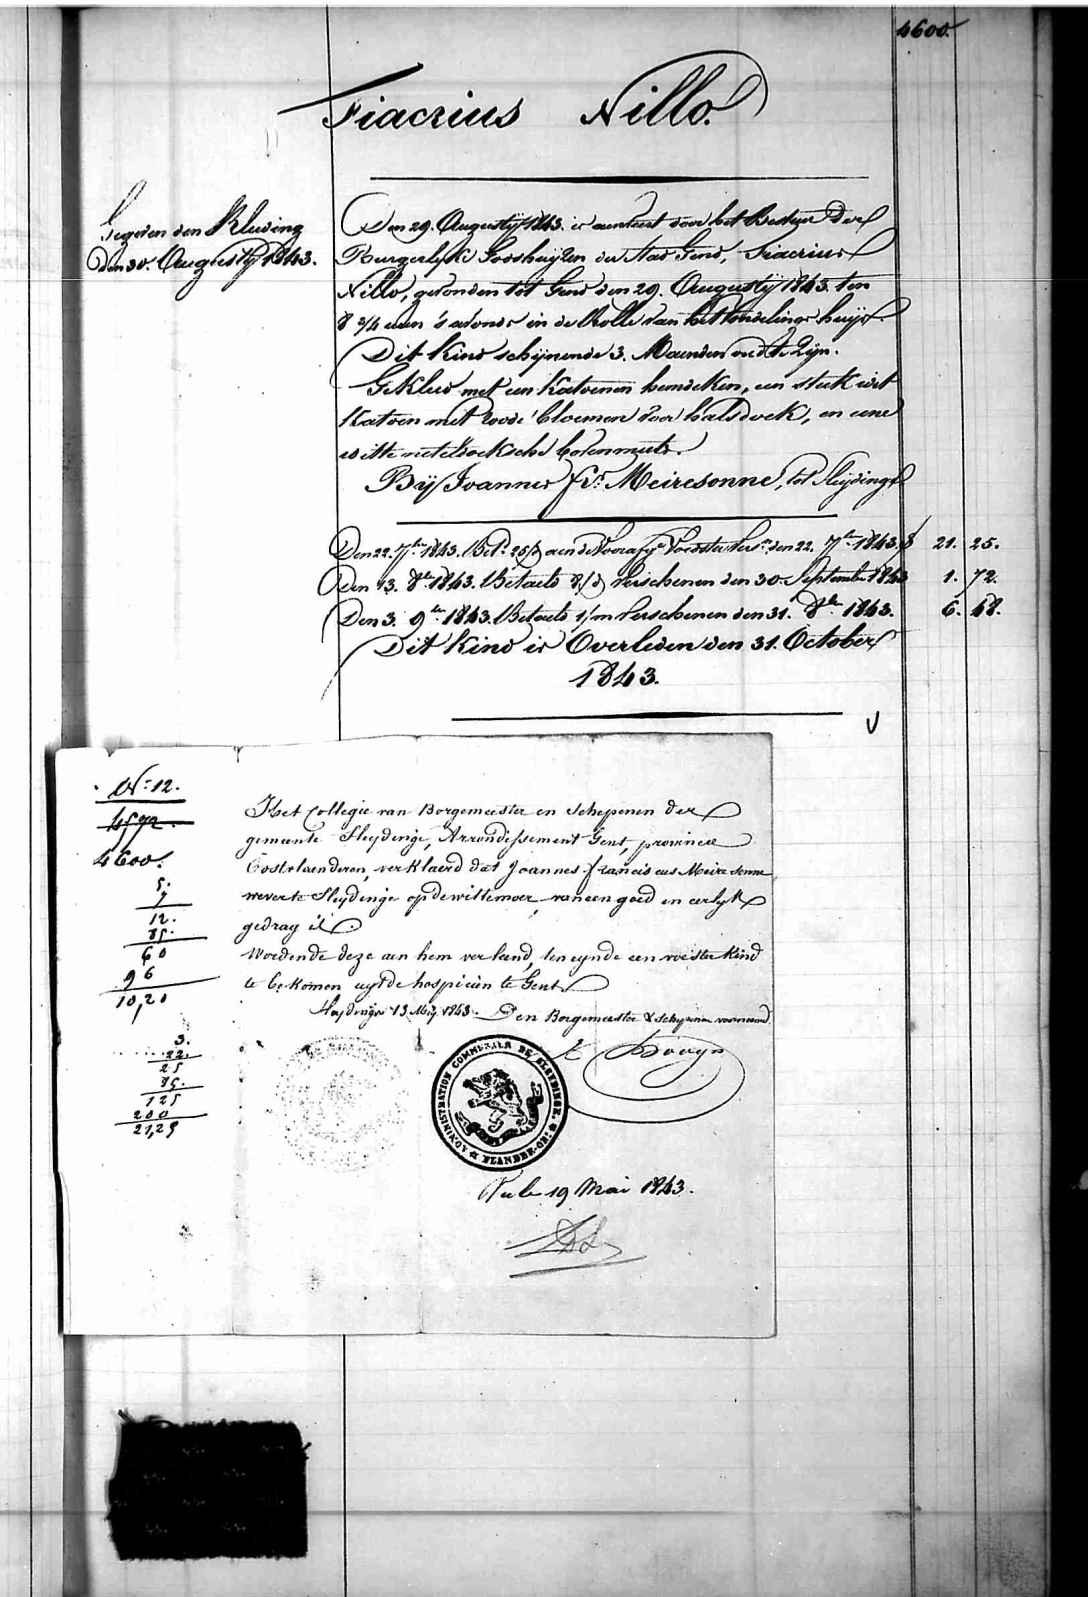 4600.
Fiacrius Nillo.
Gegeven een Kleding
Den 30. Augusty 1843.
Den 29. Augustÿ 1843. is aenveert door het Bestuer Der
Burgerlyke Godshuyzen der Stad Gend, Fiacrius
Nillo, gevonden tot Gend den 29. Augustÿ 1843. ten
8 3/4 uren 's avonds in de Rolle van het vondelings huys.
Dit Kind schijnende 3. Maenden oud te Zijn.
Gekleed met een Katoenen hemdeken, een stuk wit
Katoen met roode bloemen voor halsdoek, en eene
witte neteldoeksche bovenmuts.
Bÿ Joannes fs. Meiresonne, tot Sleydinge
Den 22. 7bre 1843. Bet. 25/d aen de Voorafg. Voedster vers. den 22. 7bre 1843. f 21. 25.
Den 13. 8bre 1843. Betaeld 8/d verschenen den 30. September 1843 1. 72.
Den 3. 9bre 1843. Betaeld 1/m verschenen den 31. 8bre 1843. 6. 48.
Dit Kind is Overleden den 31. October
1843.
V
N: 12.
4592.
4600.
5.
7
12.
85.
60
96
10,20
3.
22.
25
85.
125
200
21,25
Het Collegie van Borgemeester en Schepenen der
gemeente Sleydinge, Arrondissement Gent, provincie
Oostvlaenderen, verklaerd dat Joannes franciscus Meiresonne
wever te Sleydinge op de wittemoer, van een goed en eerlyk
gedrag is.
Wordende deze aen hem verleend, ten eynde een voester Kind
te bekomen uyt de hospicien te Gent
Sleydinge 13 Mey 1843. Den Borgemeester & schepenen voornoemd
ADMINISTRATION COMMUNALE DE SLEYDINGE. FLANDRE-OR:
Vu le 19 Mai 1843.